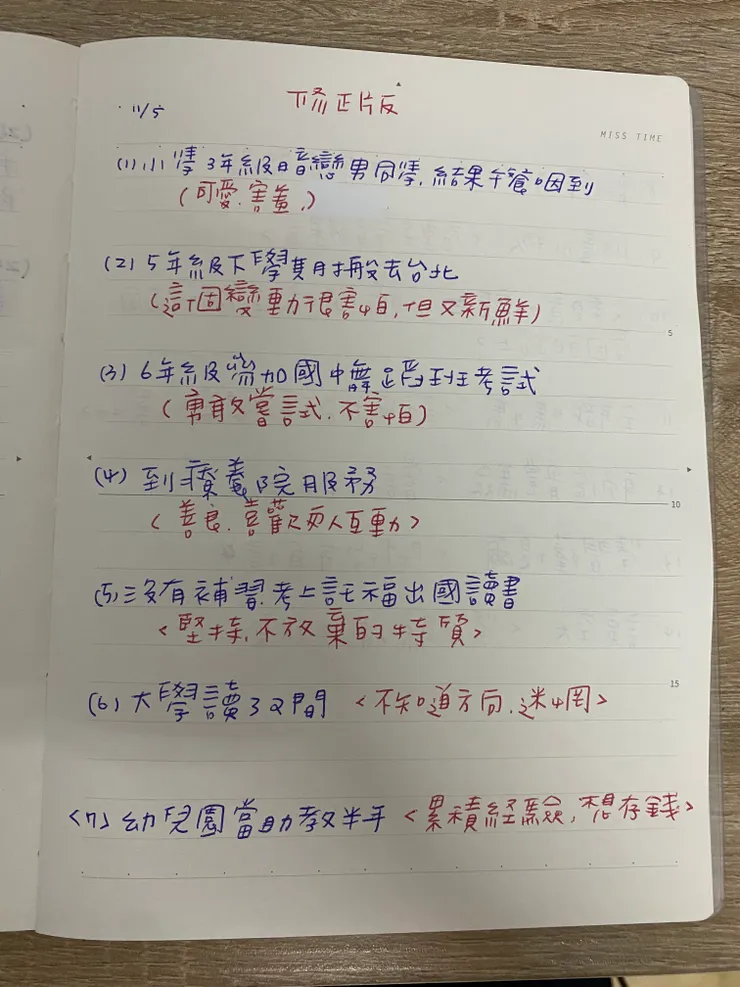 修正版
11/5
MISS TIME
(1) 小學3年級暗戀男同學, 結果午餐咽到
(可愛.害羞.)
(2) 5年級下學期搬去台北
(這個變動很害怕, 但又新鮮)
5
(3) 6年級參加國中舞蹈班考試
(勇敢嘗試. 不害怕)
(4) 到療養院服務
10
<善良. 喜歡與人互動>
(5) 沒有補習. 考上託福出國讀書
<堅持, 不放棄的特質>
15
(6) 大學讀了2間 <不知道方向. 迷惘>
<7> 幼兒園當助教半年 <累積經驗, 想存錢>